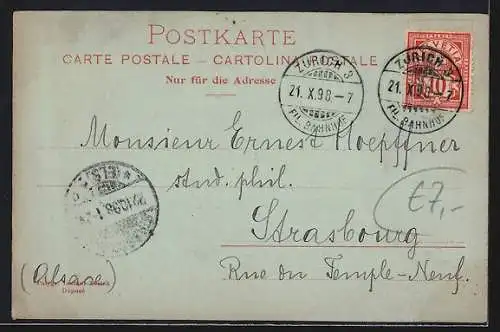 POSTKARTE
CARTE POSTALE – CARTOLINA POSTALE
Nur für die Adresse
ZÜRICH 3
21. X.98.–7
FIL. BAHNHOF
ZÜRICH 3
21. X.98.–7
FIL. BAHNHOF
HELVETIA
10
Monsieur Ernest Hoepffner
stud. phil.
£7,-
Strasbourg
(Alsace)
Rue du Temple-Neuf.
Déposé